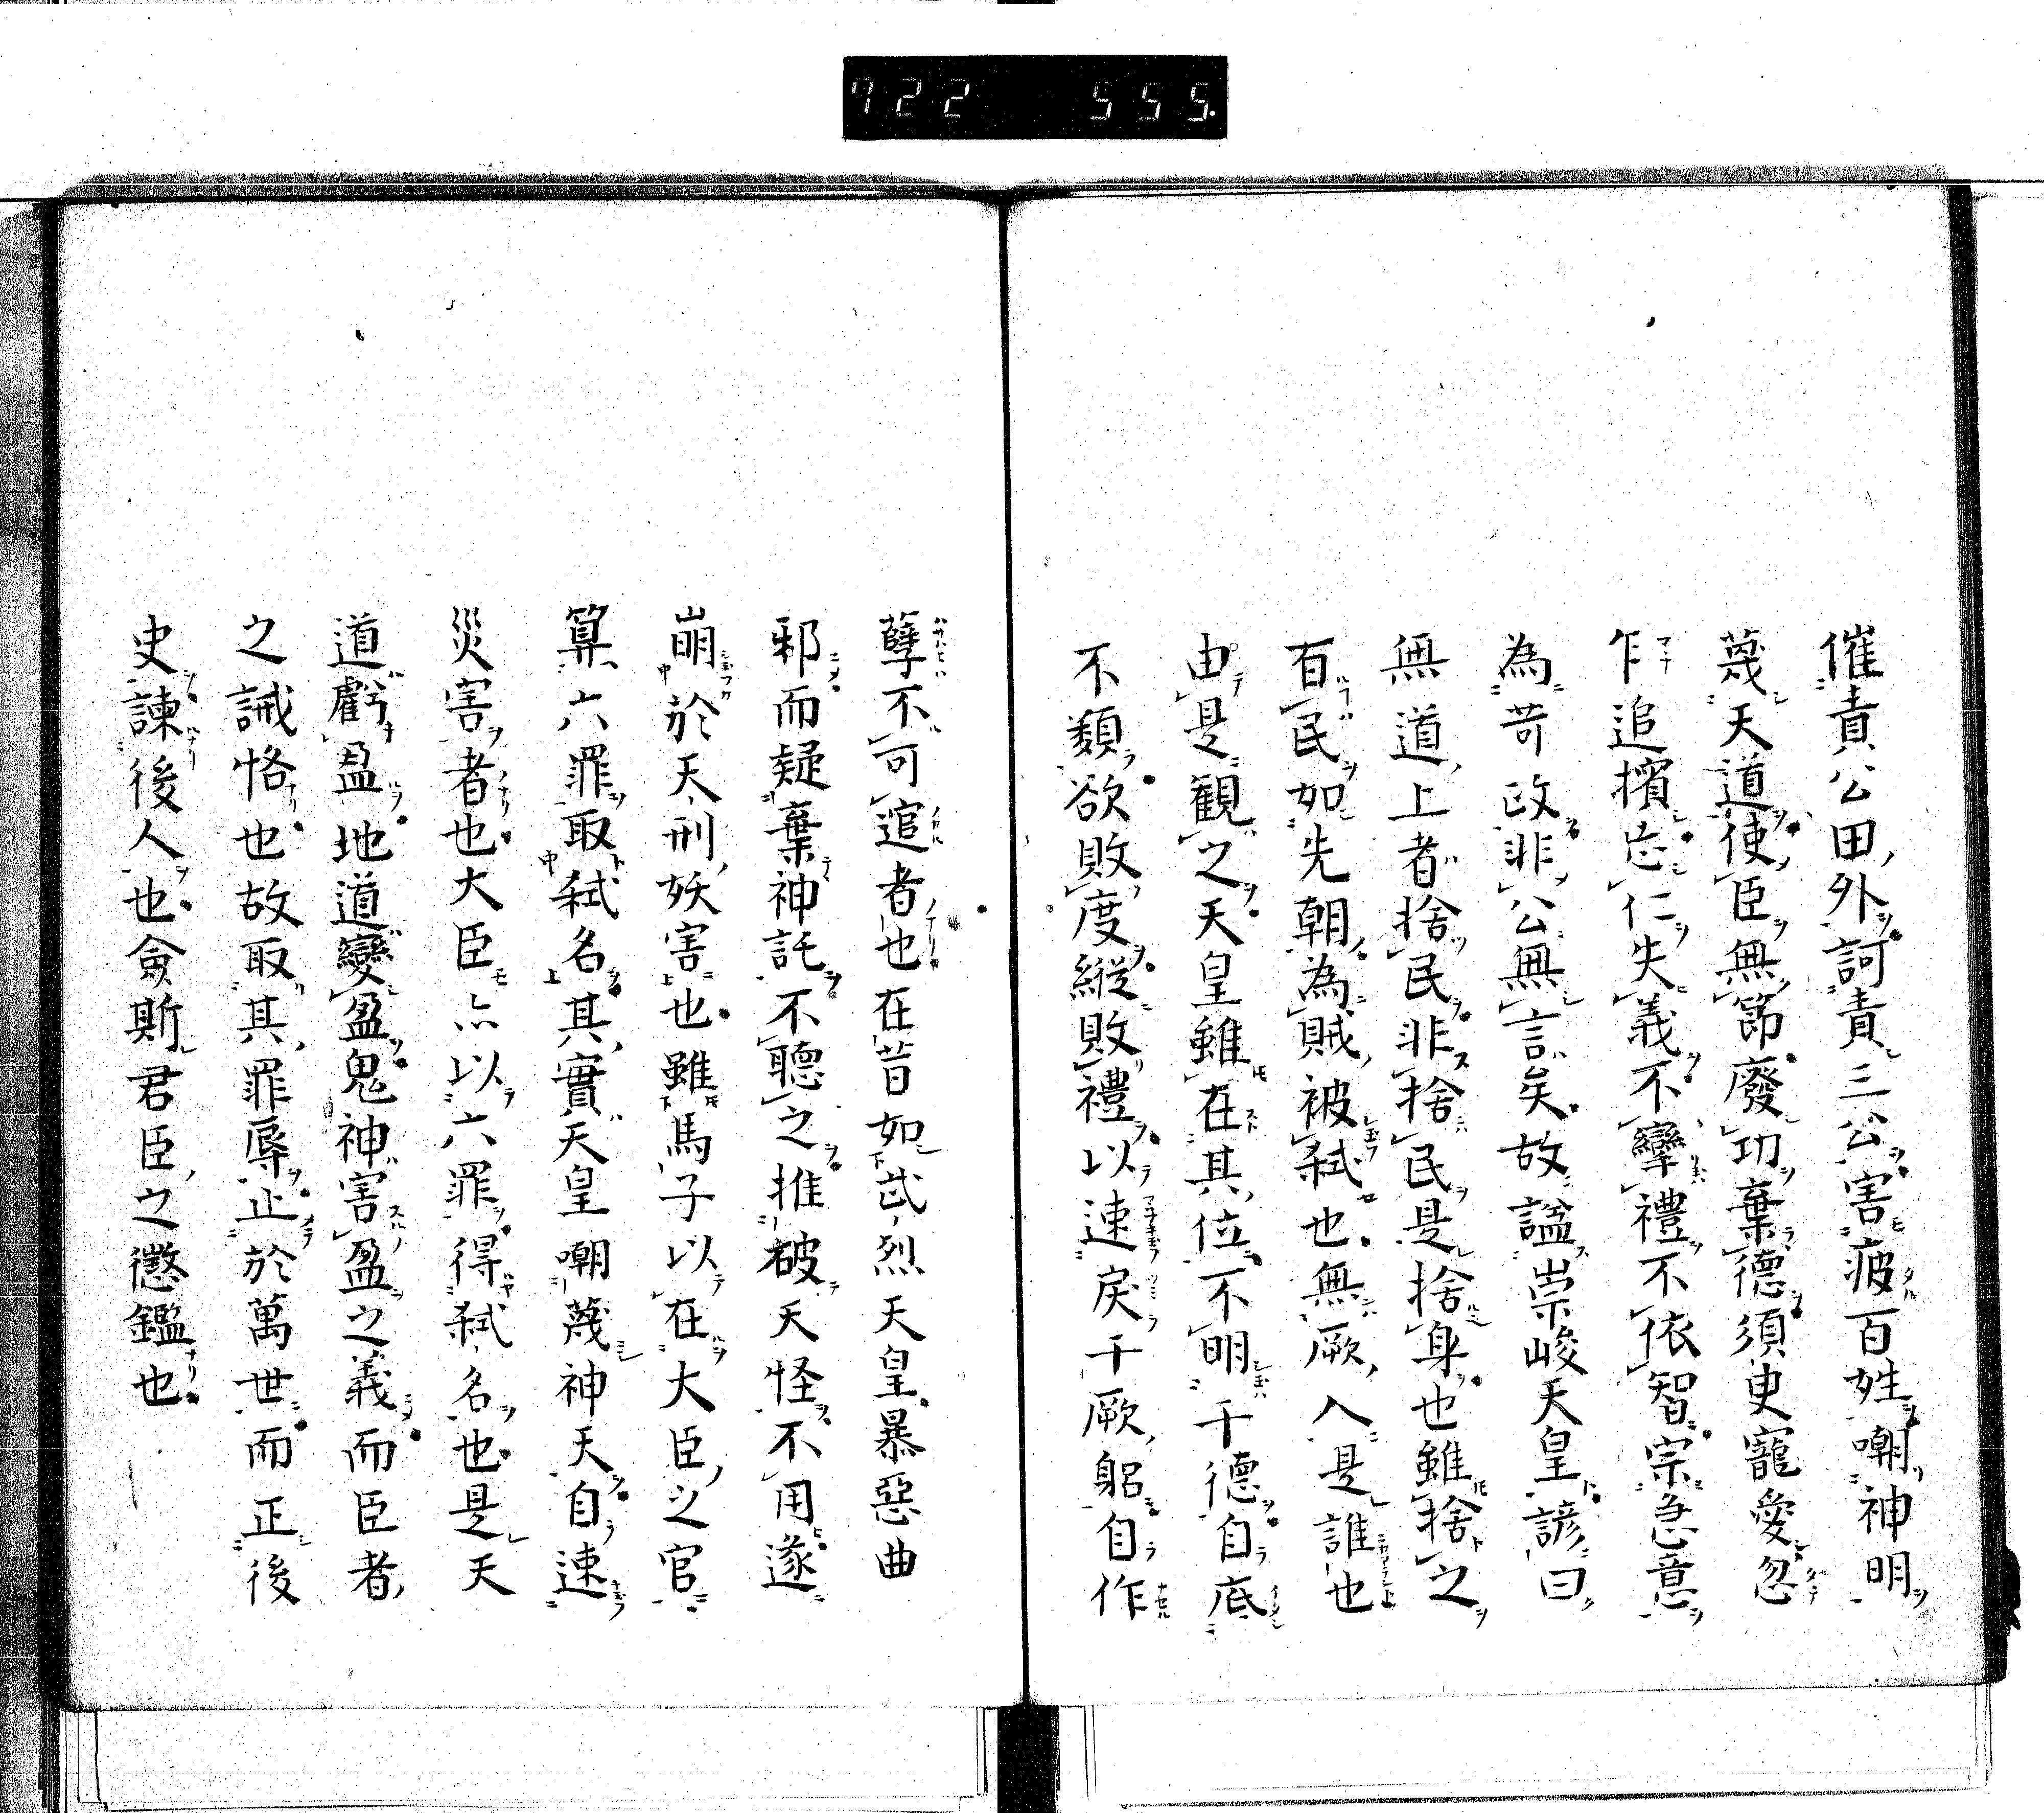 722 555.
催責公田外訶責三公害疲百姓嘲神明
蔑天道使臣無節廢功棄德須臾寵愛忽
乍追擯忘仁失義不孿禮不依智宗急意
為苛政非公無言矣故諡崇峻天皇諺曰
無道上者捨民非捨民是捨身也雖捨之
百民如先朝為賊被弒也無厥入是誰也
由是觀之天皇雖在其位不明干德自底
不類欲敗度縱敗禮以速戾干厥躬自作
孽不可逭者也在昔如武烈天皇暴惡曲
邪而疑棄神託不聽之推破天怪不用遂
崩於天刑妖害也雖馬子以在大臣之官
算六罪取弒名其實天皇嘲蔑神天自速
災害者也大臣亦以六罪得弒名也是天
道虧盈地道變盈鬼神害盈之義而臣者
之誡恪也故取其罪辱止於萬世而正後
史諫後人也僉斯君臣之懲鑑也